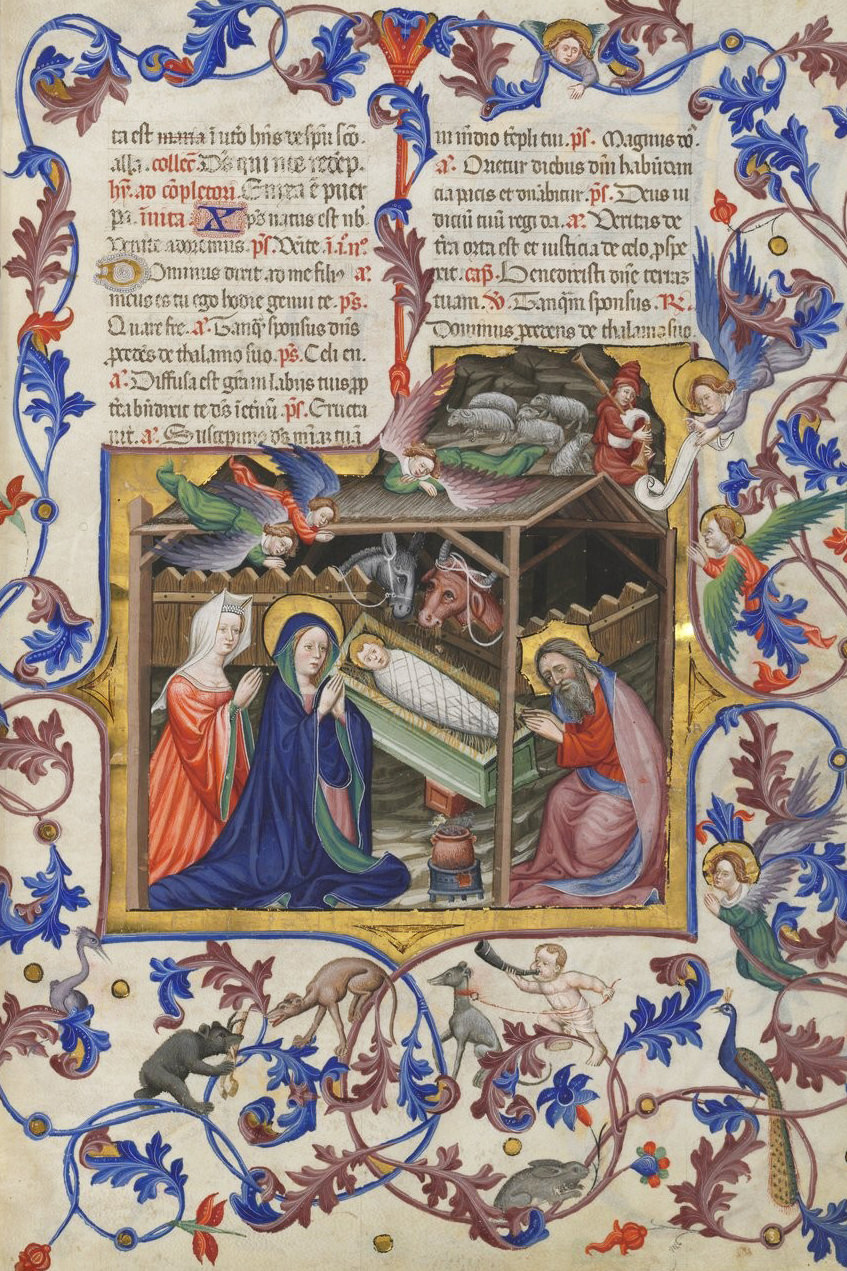 ta est maria ī uťo hñs de spū scō.
alla. collec̄ Dš qui nos redēp.
hȳ. ad cōpletori.
pr̄i. īuita Xp̄s natus est nb̄.
Venite adoremus. pš. Venite. ī. ī. n°
Dominus dixit ad me filiꝰ a̅.
meus es tu ego hodie genui te. pš.
Quare fre. a̅. Tanq̄ sponsus dn̄s
ꝓcedēs de thalamo suo. pš. Celi en.
a̅. Diffusa est gr̄a in labiis tuis ꝓp
t̄ea bn̄dixit te dš ī etnū pš. Eructa
uit. a̅. Suscepimꝰ dš m̄iaz tuā
in m̄dio tēpli tui. pš. Magnus dō.
a̅. Orietur diebus dn̄i habūdan
cia pacis et dn̄abitur. pš. Deus iu
diciū tuū regi da. a̅. Veritas de
t̄ra orta est et iusticia de celo ꝓspe
xit. cap̄. Benedixisti dn̄e terraz
tuam. V̄. Tanq̄m sponsus. R̄.
Dominus ꝓcedens de thalamo suo